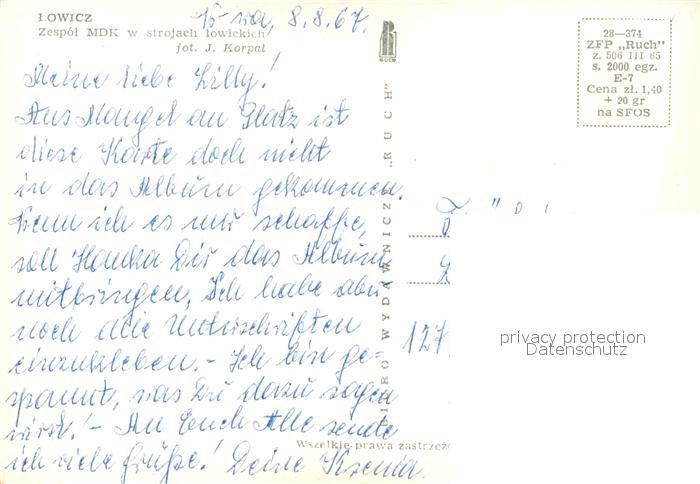 ŁOWICZ
Zespół MDK w strojach łowickich
fot. J. Korpal
W-wa, 8.8.67.
Meine liebe Lilly!
Aus Mangel an Platz ist
diese Karte doch nicht
in das Album gekommen.
Wenn ich es nur schaffe,
soll Hanka Dir das Album
mitbringen. Ich habe aber
noch die Unterschriften
einzukleben. - Ich bin ge-
spannt, was Du dazu sagen
wirst! - An Euch Alle sende
ich viele Grüße! Deine Ksenia.
BIURO WYDAWNICZE „RUCH”
RUCH
Wszelkie prawa zastrzeż
28—374
ZFP „Ruch”
z. 506 III 65
s. 2000 egz.
E-7
Cena zł. 1,40
+ 20 gr
na SFOS
127
privacy protection
Datenschutz